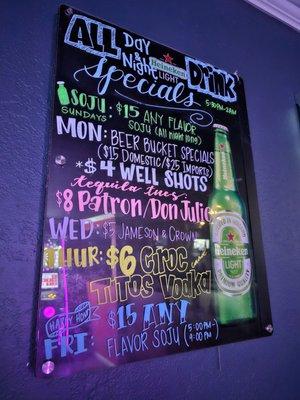 ALL Day & Night Drink
Heineken LIGHT
Specials
5:30PM-2AM
SOJU SUNDAYS: $15 ANY FLAVOR
SOJU (all night long)
MON: BEER BUCKET SPECIALS
($15 DOMESTIC/$25 IMPORTS)
*$4 WELL SHOTS
Tequila Tues:
$8 Patron/Don Julio
WED: $5 JAMESON & CROWN
THUR: $6 CIROC and
TITOS VODKA
HAPPY HOUR
FRI: $15 ANY
FLAVOR SOJU (5:00PM-
9:00PM)
Heineken
LIGHT